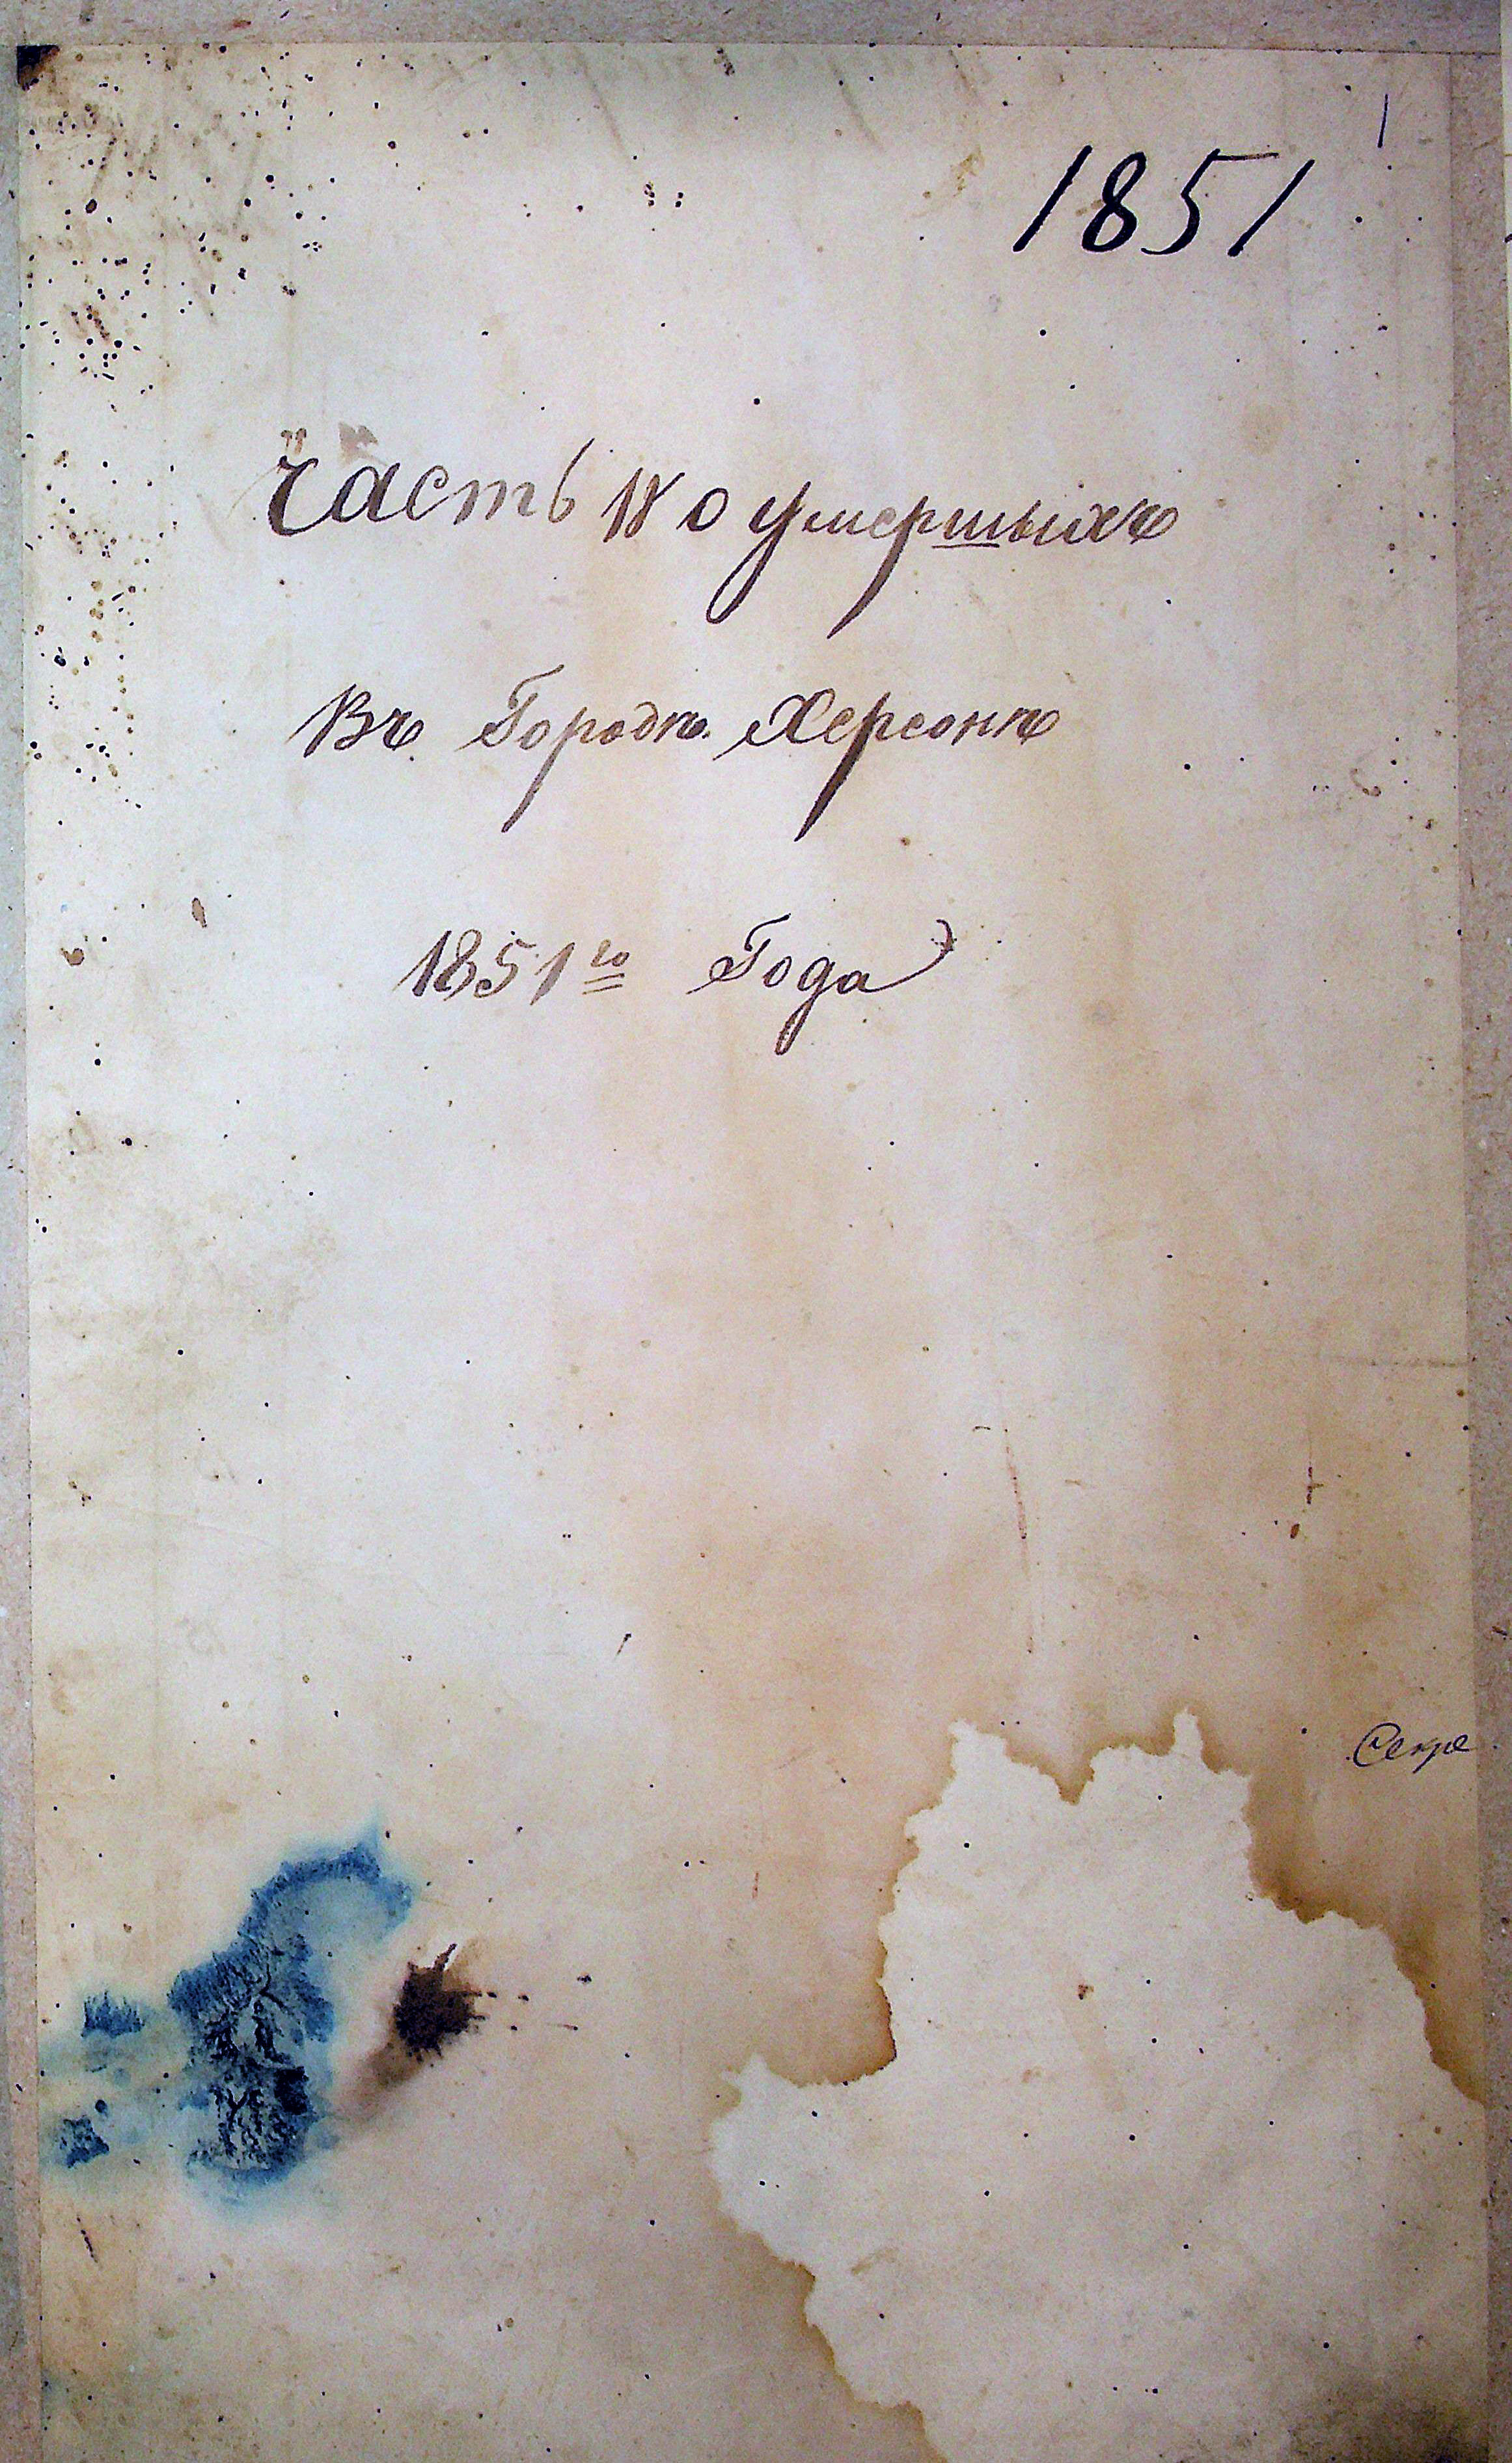 1
1851
Часть IV о умершыхъ
Въ Городѣ Херсонѣ
1851го Года
Секре